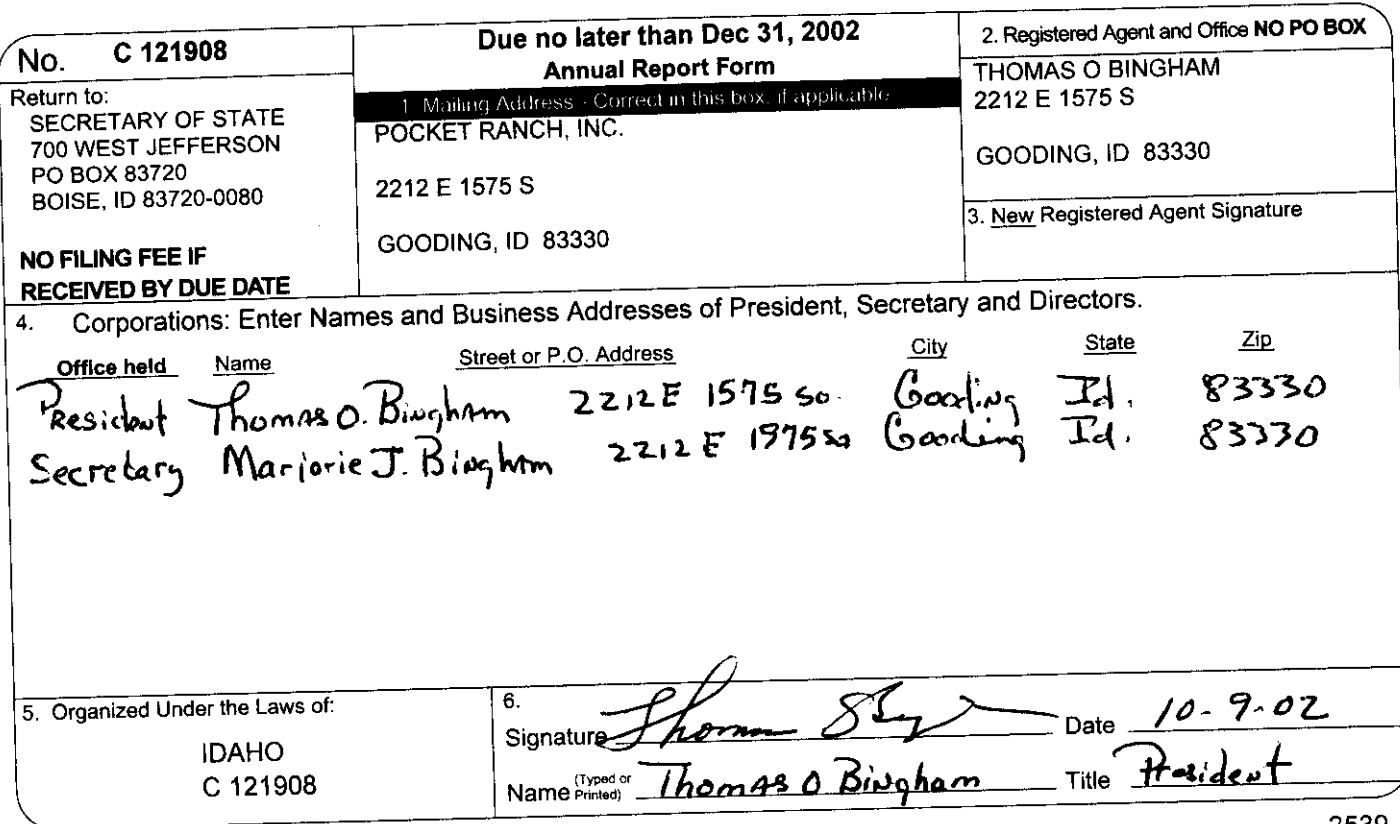 No. C 121908
Return to:
SECRETARY OF STATE
700 WEST JEFFERSON
PO BOX 83720
BOISE, ID 83720-0080
NO FILING FEE IF
RECEIVED BY DUE DATE
Due no later than Dec 31, 2002
Annual Report Form
1. Mailing Address - Correct in this box, if applicable
POCKET RANCH, INC.
2212 E 1575 S
GOODING, ID 83330
2. Registered Agent and Office NO PO BOX
THOMAS O BINGHAM
2212 E 1575 S
GOODING, ID 83330
3. New Registered Agent Signature
4. Corporations: Enter Names and Business Addresses of President, Secretary and Directors.
Office held Name Street or P.O. Address City State Zip
President Thomas O. Bingham 2212 E 1575 So. Gooding Id. 83330
Secretary Marjorie J. Bingham 2212 E 1975 So Gooding Id. 83330
5. Organized Under the Laws of:
IDAHO
C 121908
6.
Signature Thomas Date 10-9-02
Name (Typed or Printed) Thomas O Bingham Title President